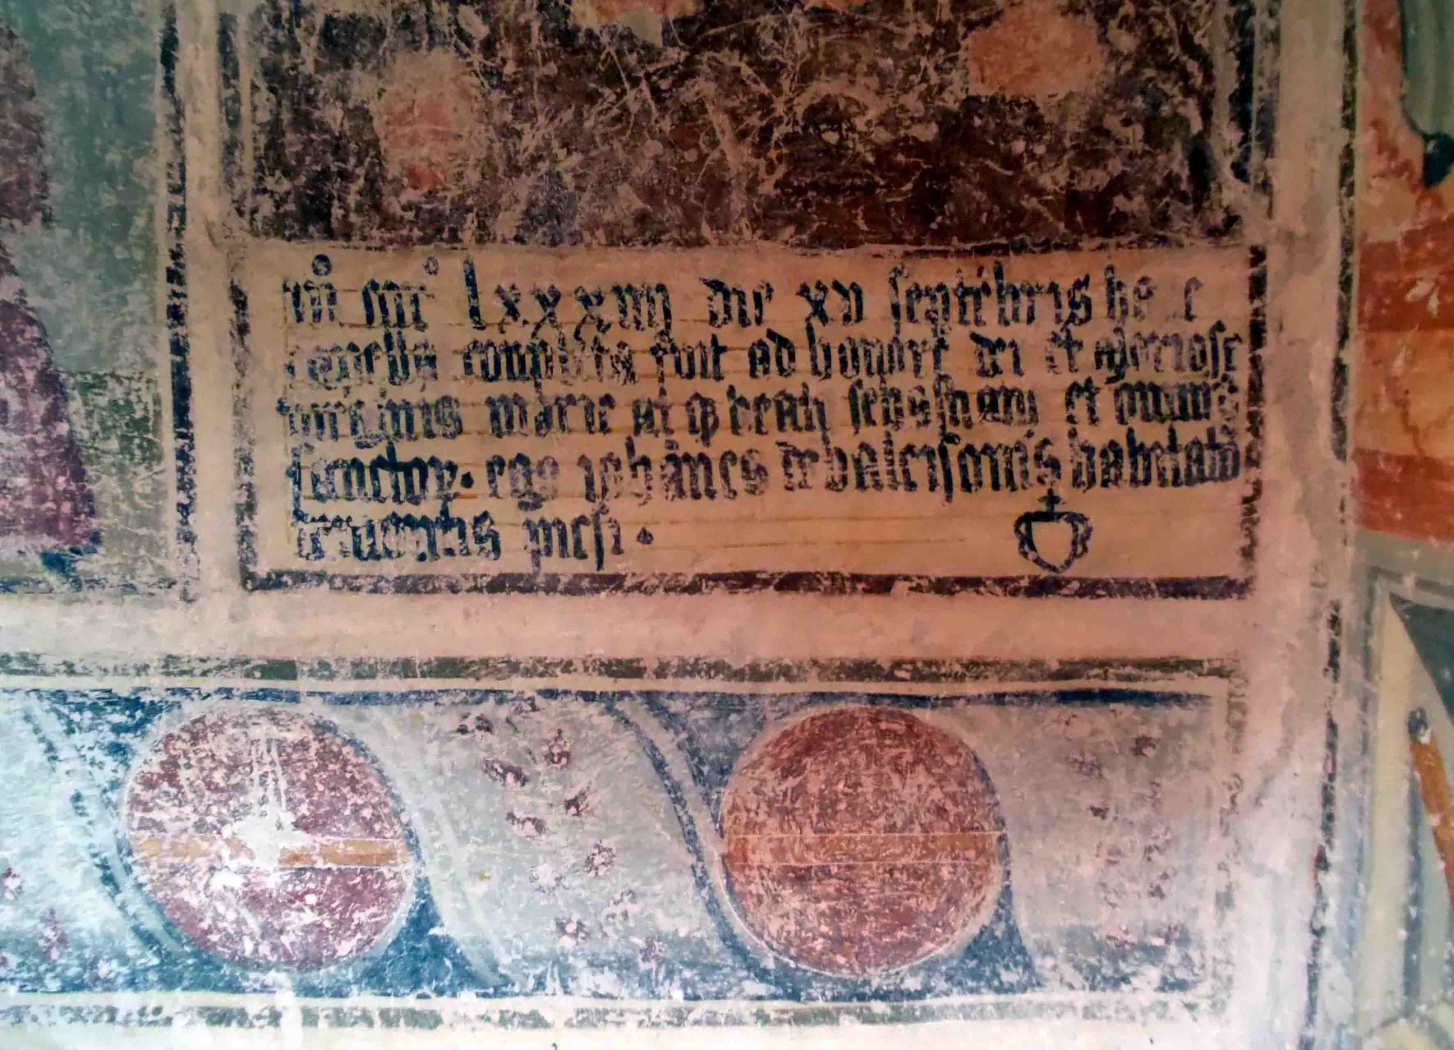 mº cccº lxxxiiii die xv septēbris hec
capella conpleta fuit ad honore dei et gloriose
virginis marie ac q beati sebastiani et omniū
sanctoꝝ. ego iohānes de balcisonis habitator
pinsi.